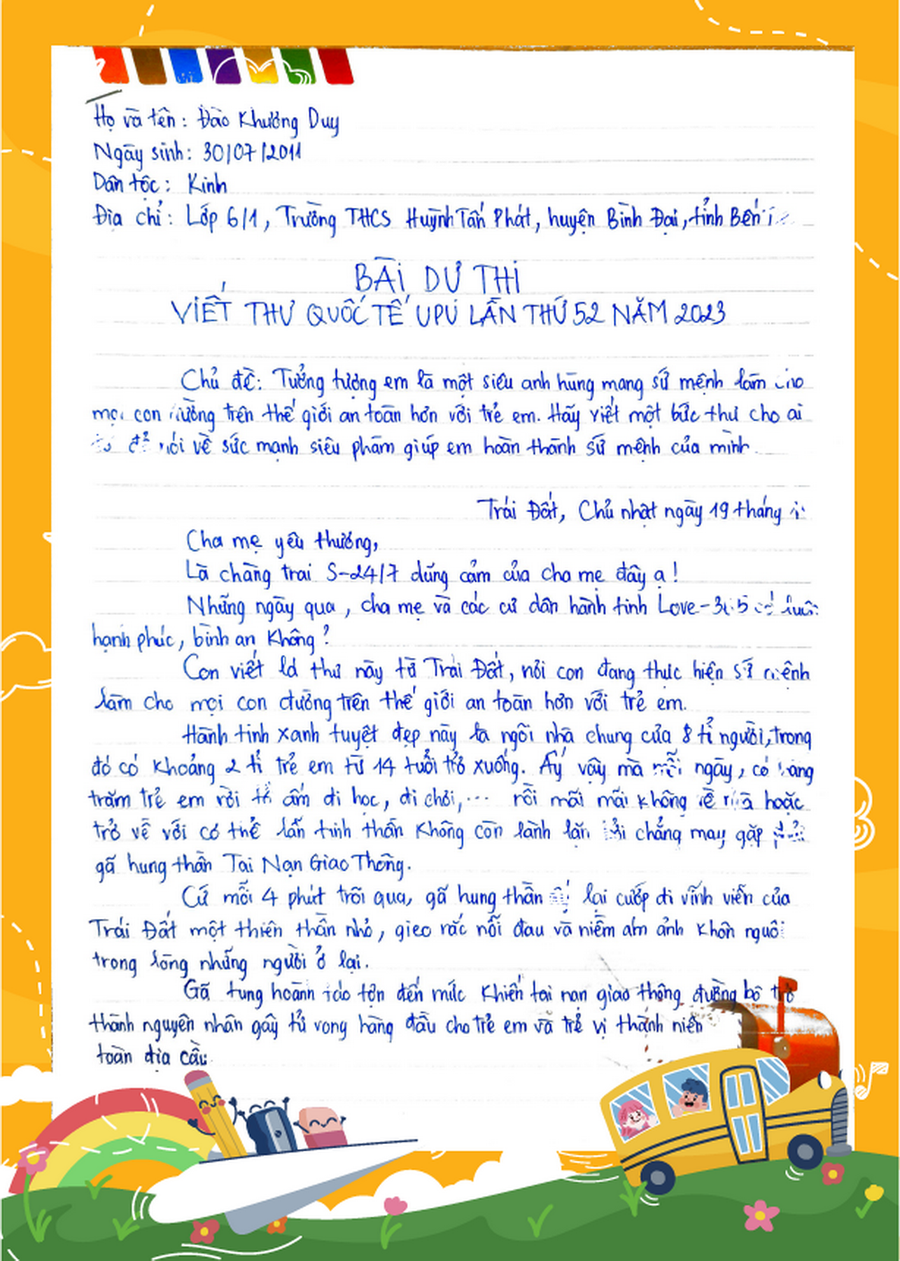 Họ và tên : Đào Khương Duy
Ngày sinh : 30/07/2011
Dân tộc : Kinh
Địa chỉ : Lớp 6/1, Trường THCS Huỳnh Tấn Phát, huyện Bình Đại, tỉnh Bến
BÀI DỰ THI
VIẾT THƯ QUỐC TẾ UPU LẦN THỨ 52 NĂM 2023
Chủ đề: Tưởng tượng em là một siêu anh hùng mang sứ mệnh làm cho
mọi con đường trên thế giới an toàn hơn với trẻ em. Hãy viết một bức thư cho ai
để nói về sức mạnh siêu phàm giúp em hoàn thành sứ mệnh của mình.
Trái Đất, Chủ nhật ngày 19 tháng
Cha mẹ yêu thương,
Là chàng trai S-24/7 dũng cảm của cha mẹ đây ạ !
Những ngày qua, cha mẹ và các cư dân hành tinh Love-365 có luôn
hạnh phúc, bình an không ?
Con viết lá thư này từ Trái Đất, nơi con đang thực hiện sứ mệnh
làm cho mọi con đường trên thế giới an toàn hơn với trẻ em.
Hành tinh xanh tuyệt đẹp này là ngôi nhà chung của 8 tỉ người, trong
đó có khoảng 2 tỉ trẻ em từ 14 tuổi trở xuống. Ấy vậy mà mỗi ngày, có hàng
trăm trẻ em rời tổ ấm đi học, đi chơi,... rồi mãi mãi không về nhà hoặc
trở về với cơ thể lẫn tinh thần không còn lành lặn bởi chẳng may gặp phải
gã hung thần Tai Nạn Giao Thông.
Cứ mỗi 4 phút trôi qua, gã hung thần ấy lại cướp đi vĩnh viễn của
Trái Đất một thiên thần nhỏ, gieo rắc nỗi đau và niềm ám ảnh khôn nguôi
trong lòng những người ở lại.
Gã tung hoành tàn bạo đến mức khiến tai nạn giao thông đường bộ trở
thành nguyên nhân gây tử vong hàng đầu cho trẻ em và trẻ vị thành niên
toàn địa cầu.